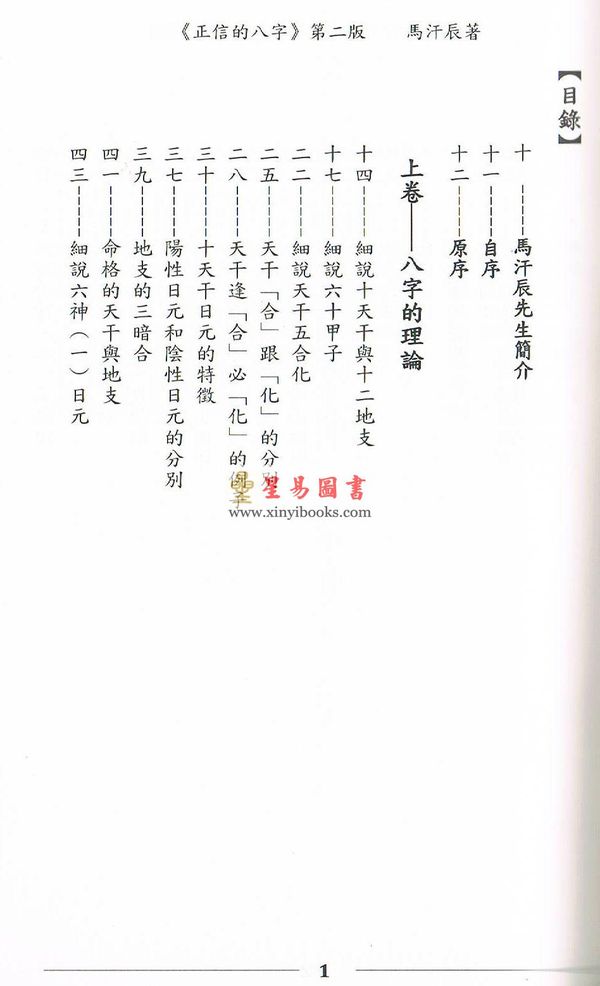 《正信的八字》第二版　　馬汗辰著
【目錄】
十 ------馬汗辰先生簡介
十一------自序
十二------原序
上卷——八字的理論
十四------細說十天干與十二地支
十七------細說六十甲子
二二------細說天干五合化
二五------天干「合」跟「化」的分別
二八------天干逢「合」必「化」的例子
三十------十天干日元的特徵
三七------陽性日元和陰性日元的分別
三九------地支的三暗合
四一------命格的天干與地支
四三------細說六神（一）日元
星易圖書
www.xinyibooks.com
1